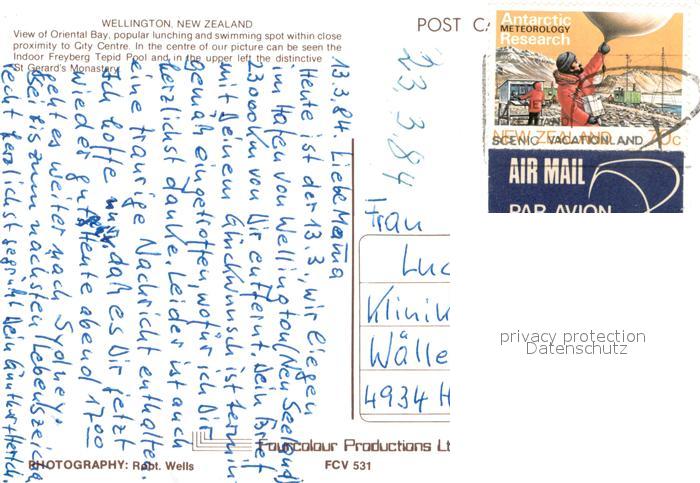 WELLINGTON, NEW ZEALAND
View of Oriental Bay, popular lunching and swimming spot within close
proximity to City Centre. In the centre of our picture can be seen the
Indoor Freyberg Tepid Pool and in the upper left the distinctive
St Gerard's Monastery
POST C
Antarctic
METEOROLOGY
Research
NEW ZEALAND 70c
SCENIC VACATIONLAND
AIR MAIL
PAR AVION
23.3.84
13.3.84. Liebe Mama
Heute ist der 13.3., wir liegen
im Hafen von Wellington (Neu Seeland)
23000 km von Dir entfernt. Dein Brief
mit Deinem Glückwunsch ist termin
gemäß eingetroffen, wofür ich Dir
herzlichst danke. Leider ist auch
eine traurige Nachricht enthalten.
Ich hoffe nur, daß es Dir jetzt
wieder gut Heute abend 17.00
geht es weiter nach Sydney.
Bis zum nächsten Lebenszeichen
recht herzlichst Dein
Frau
Luc
Klinik
Wälle
4934 H
privacy protection
Datenschutz
Fourcolour Productions Lt
PHOTOGRAPHY: Robt. Wells
FCV 531